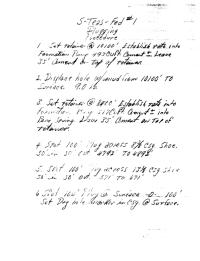 S-Tees-Fed #1
Plugging
Procedure
1 Set retainer @ 10100' Establish rate into
Formation Pump 493 Cuft Cement & Leave
35' Cement on Top of retainer
2. Displace hole w/mud from 10100' TO
Surface 9.0 lb.
3. Set retainer @ Establish rate into
Formation Pump Cement into
35' Cement on Top of
retainer.
4. Spot 100' Plug across 8 5/8 Csg Shoe.
50' in 50' out 4793' TO 4893'
5. Spot 100' Plug across 13 3/8 Csg Shoe
50' in 50' out. 571' TO 671'
6 Spot 100' Plug @ Surface 0 - 100'
Set Dry hole marker in Csg @ Surface.